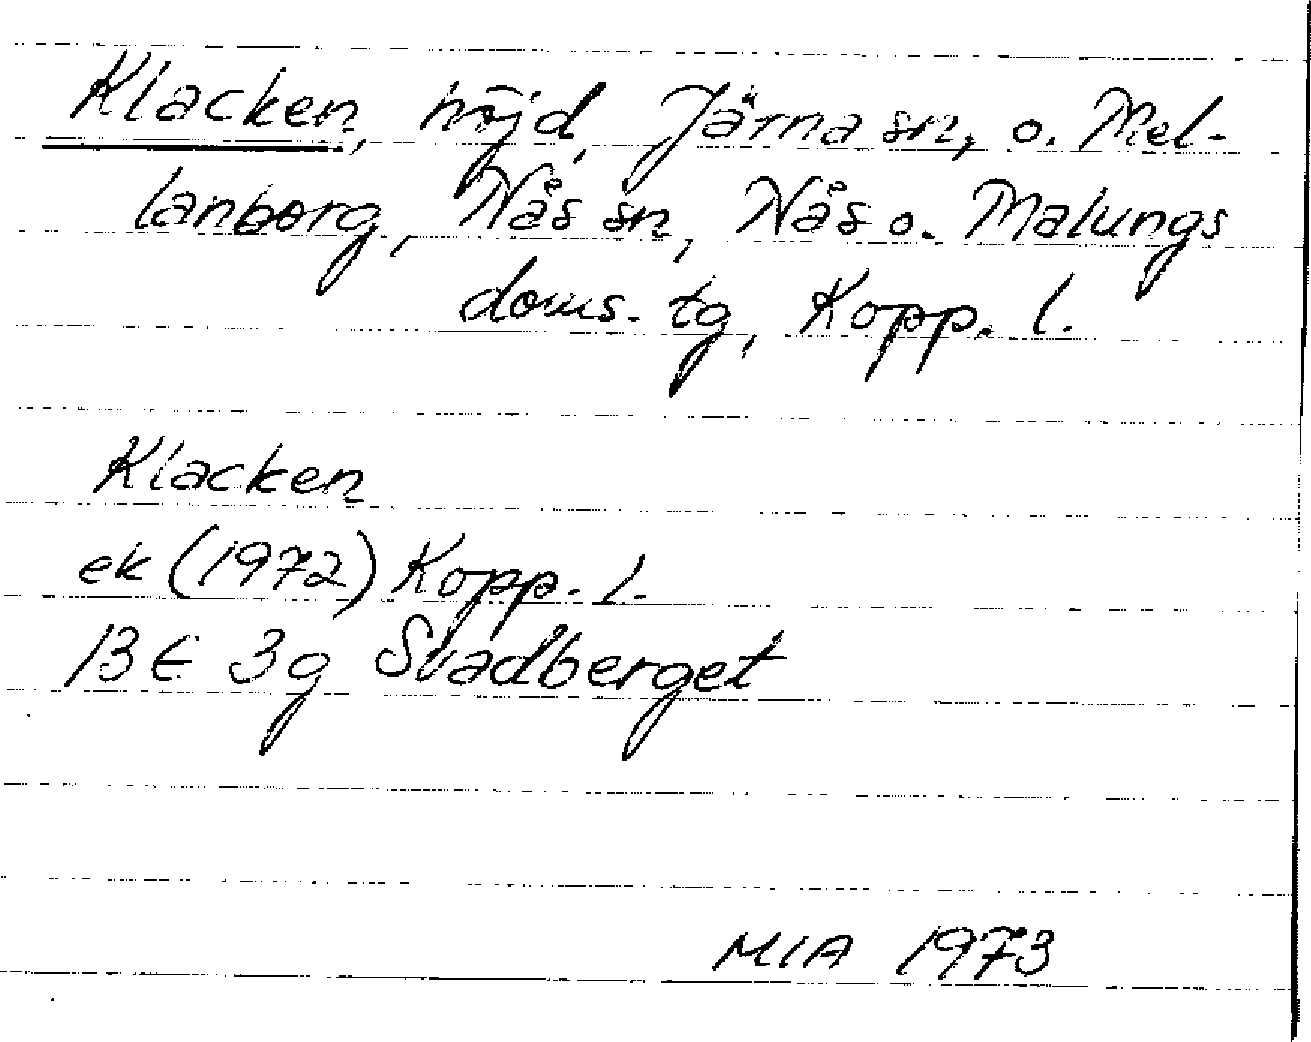 Klacken, höjd, Järna sn, o. Mel-
lanborg, Nås sn, Nås o. Malungs
doms. tg, Kopp. l.
Klacken
ek (1972) Kopp. l.
13E 3g Svadberget
MIA 1973